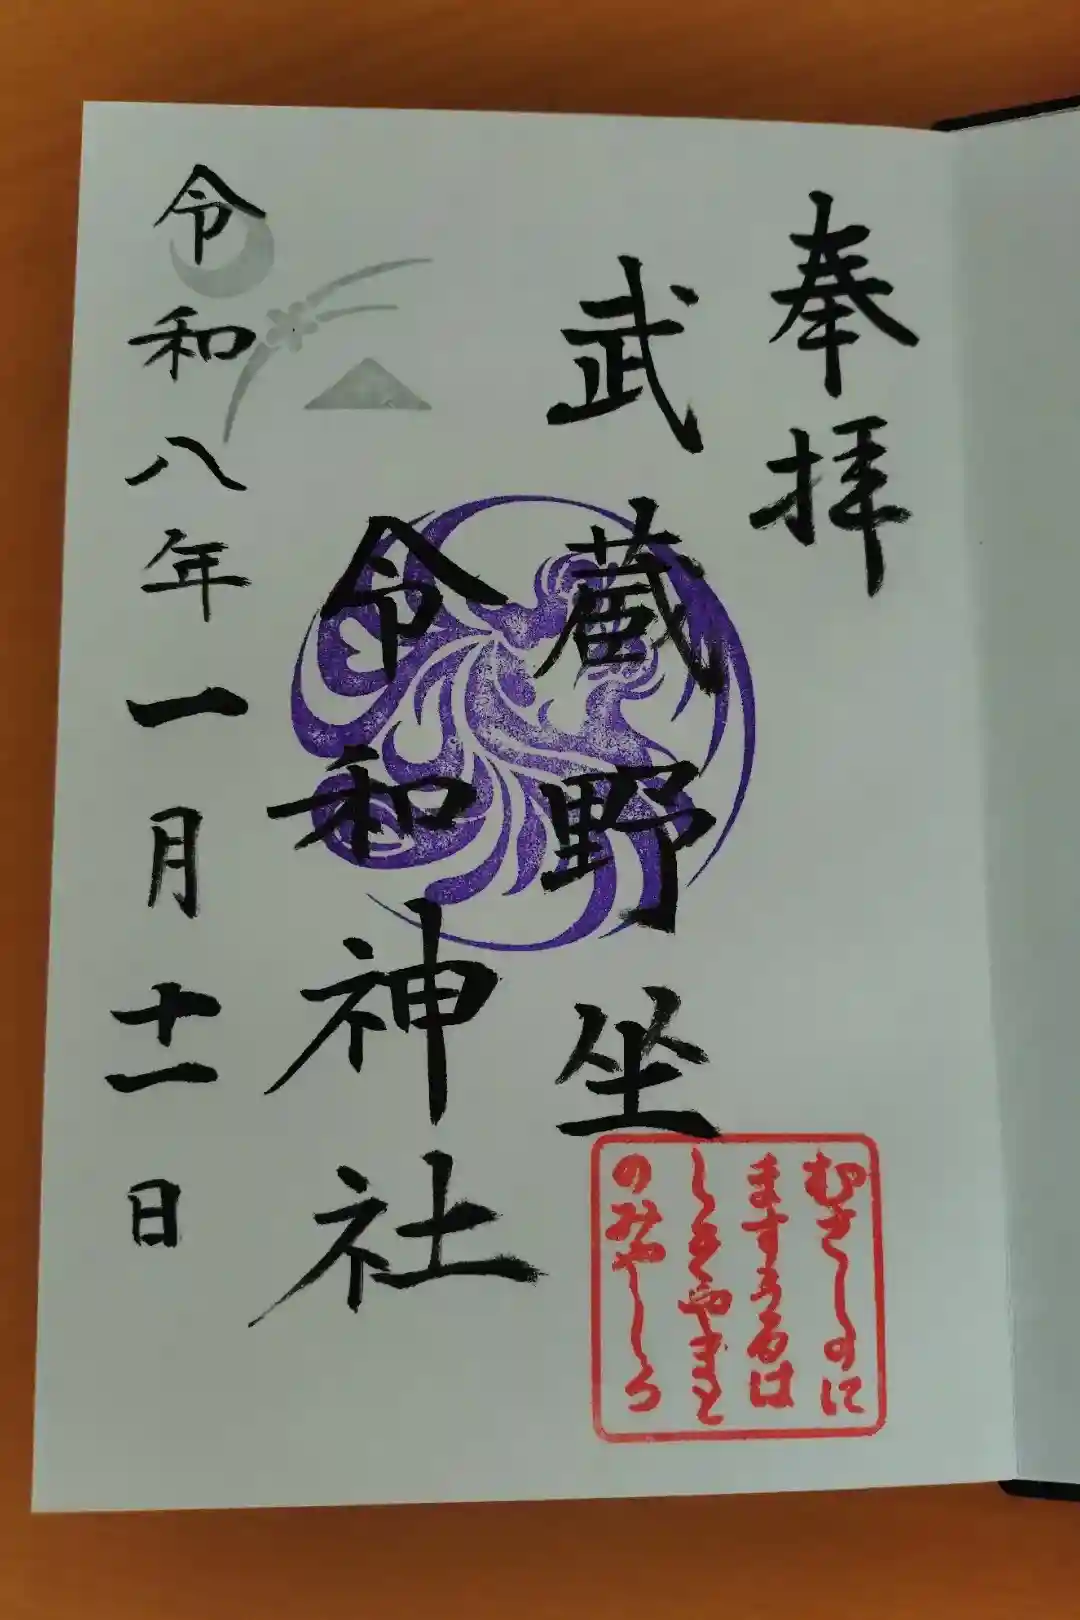 奉拝
武蔵野坐
令和神社
令和八年一月十一日
むさしのに
ますうるは
しきやまと
のみやしろ